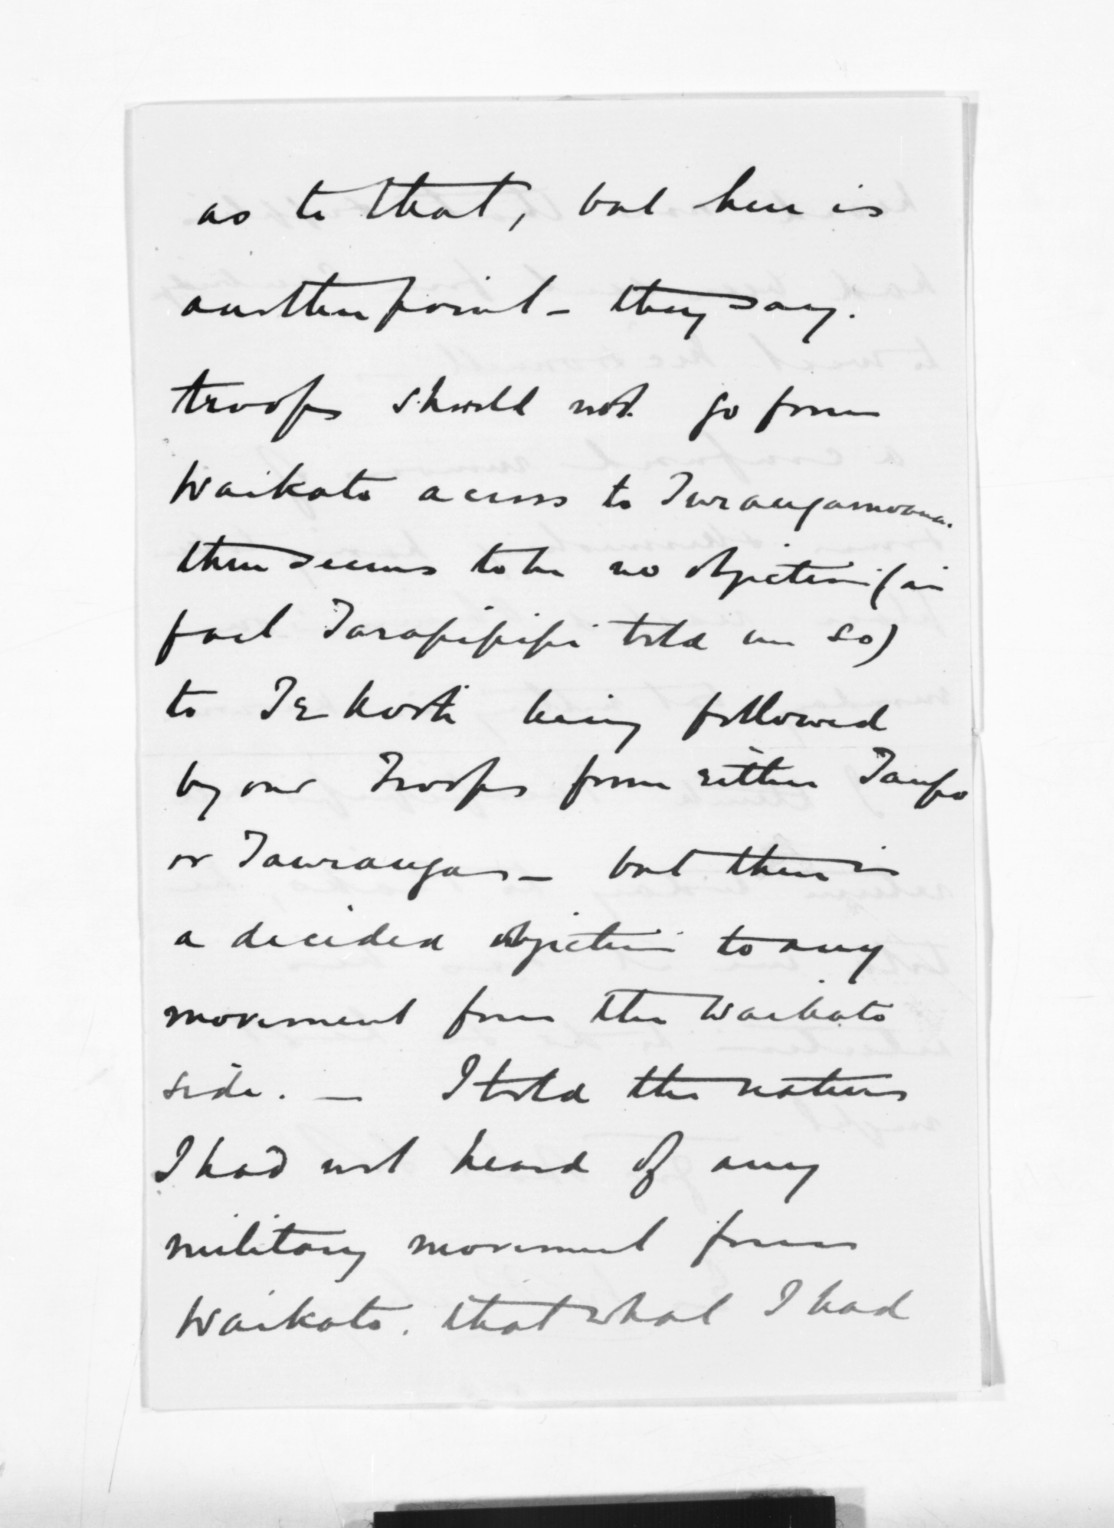 as to that, but here is
another point - they say.
troops should not go from
Waikato across to Turangamoana.
there seems to be no objection (in
fact Tarapipipi told me so)
to Te Kooti being followed
by our Troops from either Taupo
or Tauranga - but there is
a decided objection to any
movement from the Waikato
side. - I told the natives
I had not heard of any
military movement from
Waikato. that what I had